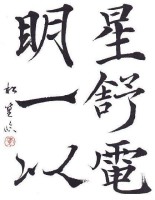 星舒電
明一以